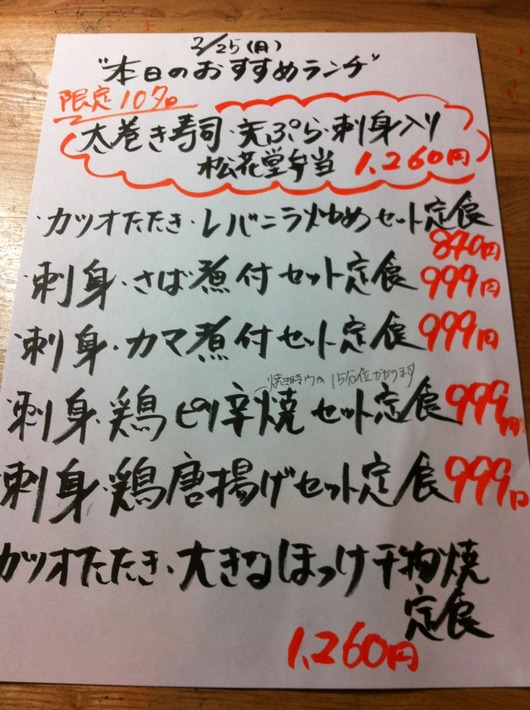 2/25(月)
"本日のおすすめランチ"
限定10名
太巻き寿司・天ぷら・刺身入り
松花堂弁当 1,260円
・カツオたたき・レバニラ炒めセット定食
840円
・刺身・さば煮付セット定食 999円
・刺身・カマ煮付セット定食 999円
焼き時間 15分位かかります
・刺身・鶏ピリ辛焼セット定食 999円
・刺身・鶏唐揚げセット定食 999円
カツオたたき・大きなほっけ干物焼
定食
1,260円